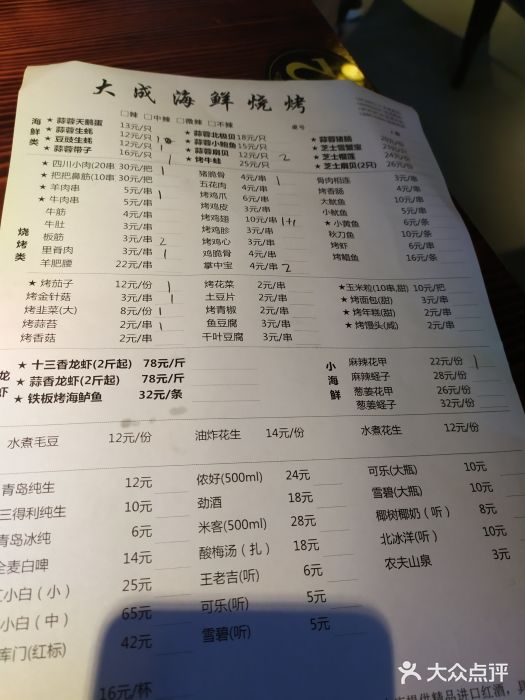 大成海鲜烧烤
□辣 □中辣 □微辣 □不辣 桌号
海鲜类
★ 蒜蓉天鹅蛋 13元/只
★ 蒜蓉生蚝 12元/只
★ 豆豉生蚝 12元/只
★ 蒜蓉带子 16元/只
★ 蒜蓉北极贝 18元/只
★ 蒜蓉小鲍鱼 15元/只
★ 蒜蓉扇贝
★ 烤牛蛙 25元/只 2
★ 芝士榴莲
★ 芝士扇贝(2只)
烧烤类
★ 四川小肉(20串 30元/把
★ 把把鼻筋(10串 30元/把
★ 羊肉串 5元/串
★ 牛肉串 5元/串
牛筋 4元/串
牛肚 3元/串
板筋 3元/串 2
里脊肉 4元/串
羊肥腰 22元/串
猪脆骨 4元/串
五花肉 4元/串
烤鸡爪 6元/串
烤鸡皮 3元/串
烤鸡翅 10元/串 1+1
烤鸡胗 3元/串
烤鸡心 3元/串
鸡脆骨 4元/串
掌中宝 4元/串 2
骨肉相连 3元/串
烤香肠 4元/串
大鱿鱼 10元/串
小鱿鱼 5元/串
★ 小黄鱼 6元/条
秋刀鱼 10元/条
烤虾 6元/串
烤鲳鱼 16元/条
★ 烤茄子 12元/份
烤金针菇 3元/串
烤韭菜(大) 8元/份
烤蒜苔 2元/串
烤香菇 2元/串
烤花菜 2元/串
土豆片 2元/串
烤青椒 2元/串
鱼豆腐 3元/串
千叶豆腐 3元/串
★玉米粒(10串,甜) 10元/串
★ 烤面包(甜) 3元/串
★ 烤年糕(甜) 2元/串
★ 烤馒头(咸) 2元/串
龙虾
★ 十三香龙虾(2斤起) 78元/斤
★ 蒜香龙虾(2斤起) 78元/斤
★ 铁板烤海鲈鱼 32元/条
小海鲜
麻辣花甲 22元/份
麻辣蛏子 28元/份
葱姜花甲 26元/份
葱姜蛏子 32元/份
水煮毛豆 12元/份
油炸花生 14元/份
水煮花生 12元/份
青岛纯生 12元
三得利纯生 10元
青岛冰纯 6元
全麦白啤 14元
小白（小） 25元
小白（中） 65元
库门(红标) 42元
16元/杯
侬好(500ml) 24元
劲酒 18元
米客(500ml) 28元
酸梅汤（扎） 18元
王老吉(听) 6元
可乐(听) 5元
雪碧(听) 5元
可乐(大瓶) 10元
雪碧(大瓶) 10元
椰树椰奶（听） 8元
北冰洋(听) 10元
农夫山泉 3元
提供精品进口红酒，
大众点评